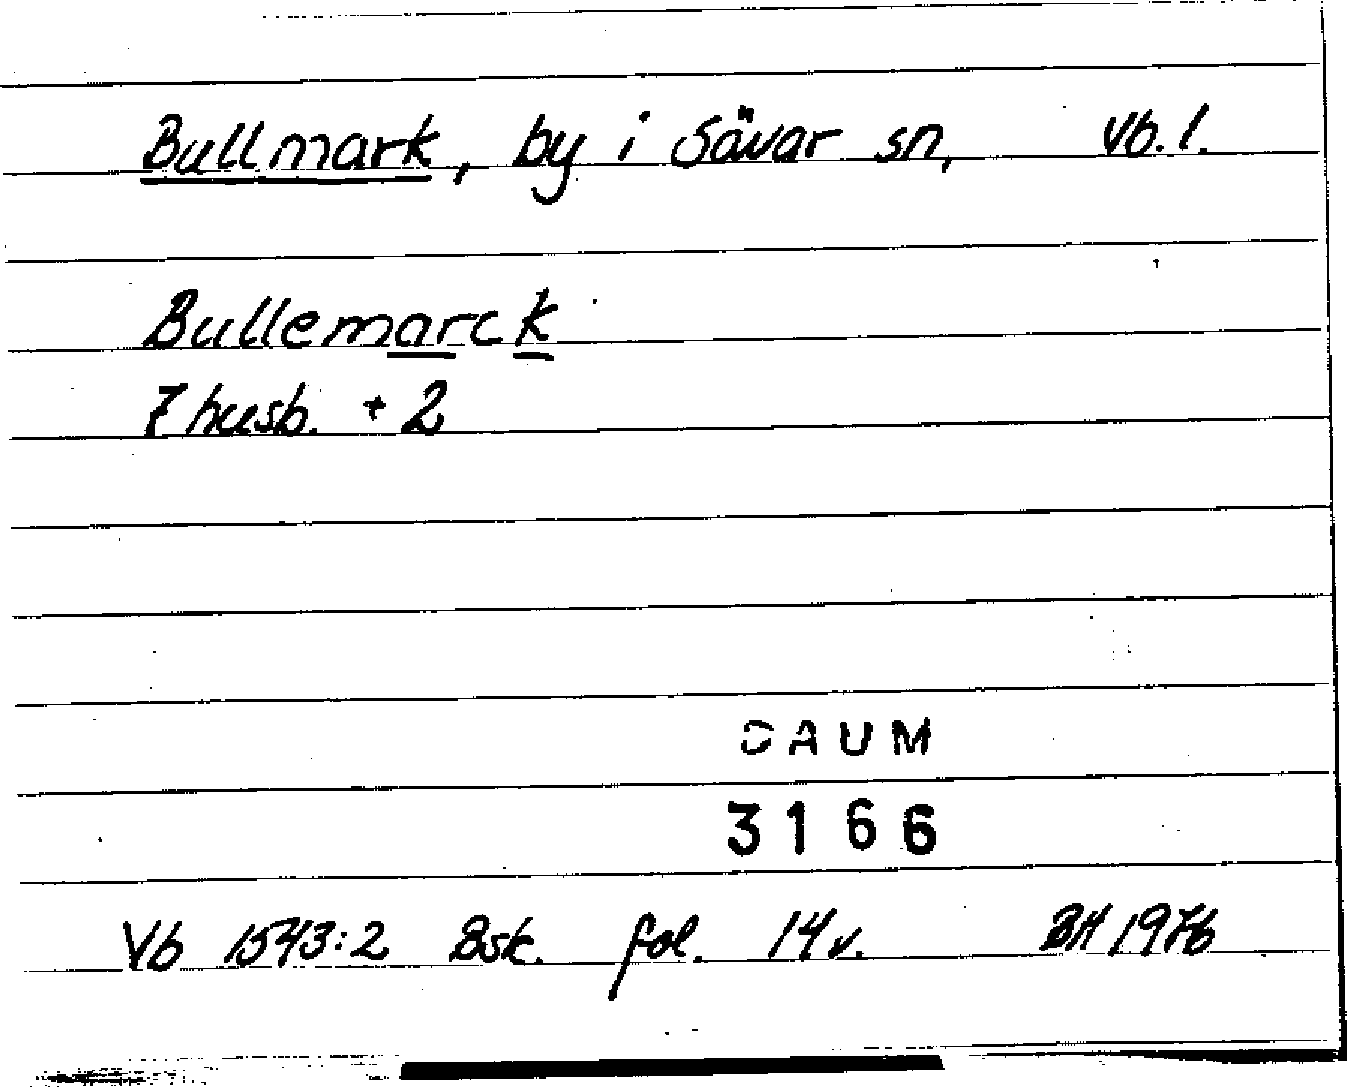 Bullmark, by i Sävar sn, Vb. l.
Bullemarck
7 husb. + 2
DAUM
3166
Vb 1543:2 Bsk. fol. 14 v. BH 1976